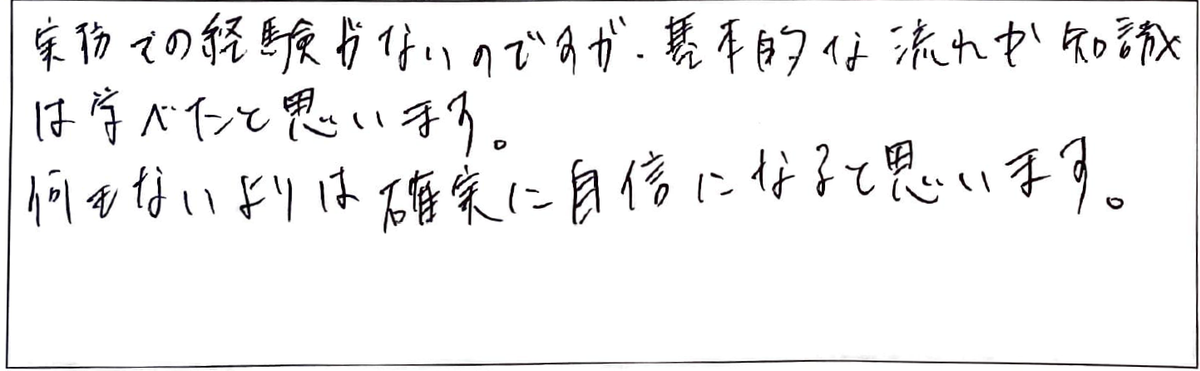 実務での経験がないのですが、基本的な流れや知識
は学べたと思います。
何もないよりは確実に自信になると思います。